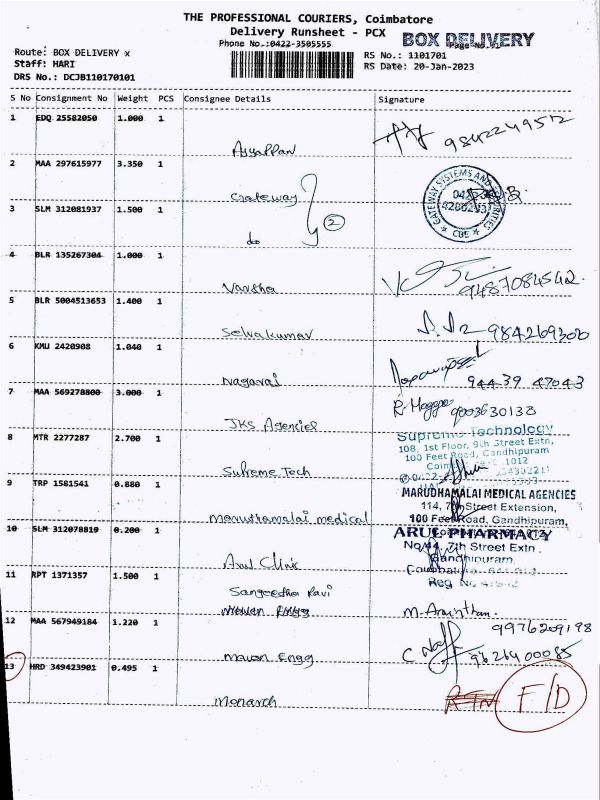 THE PROFESSIONAL COURIERS, Coimbatore
Delivery Runsheet - PCX
Phone No.:0422-3505555
BOX DELIVERY
Route: BOX DELIVERY x
Staff: HARI
DRS No.: DCJB110170101
RS No.: 1101701
RS Date: 20-Jan-2023
S No Consignment No Weight PCS Consignee Details Signature
1 EDQ 25582050 1.000 1
Ayyappan 9842249512
2 MAA 297615977 3.350 1
Gateway
3 SLM 312081937 1.500 1
do 2
GATEWAY SYSTEMS AND
CBE
4 BLR 135267304 1.000 1
Varsha 9487084542.
5 BLR 5004513653 1.400 1
Selvakumar 984269300
6 KMU 2420908 1.040 1
Nagaraj 94439 47043
7 MAA 569278800 3.000 1
JKS Agencies 9003630138
8 MTR 2277287 2.700 1
Supreme Tech
Supreme Technology
108, 1st Floor, 9th Street Extn,
100 Feet Road, Gandhipuram
9 TRP 1581541 0.880 1
Maruthamalai medical
MARUDHAMALAI MEDICAL AGENCIES
114, 7th Street Extension,
100 Feet Road, Gandhipuram,
10 SLM 312078819 0.200 1
Arul Clinic
ARUL PHARMACY
7th Street Extn
Gandhipuram,
Coimbatore
Reg No
11 RPT 1371357 1.500 1
Sangeetha Ravi
12 MAA 567949184 1.220 1
Mawen Engg
9976209198
13 HRD 349423901 0.495 1
Monarch
RTN F/D